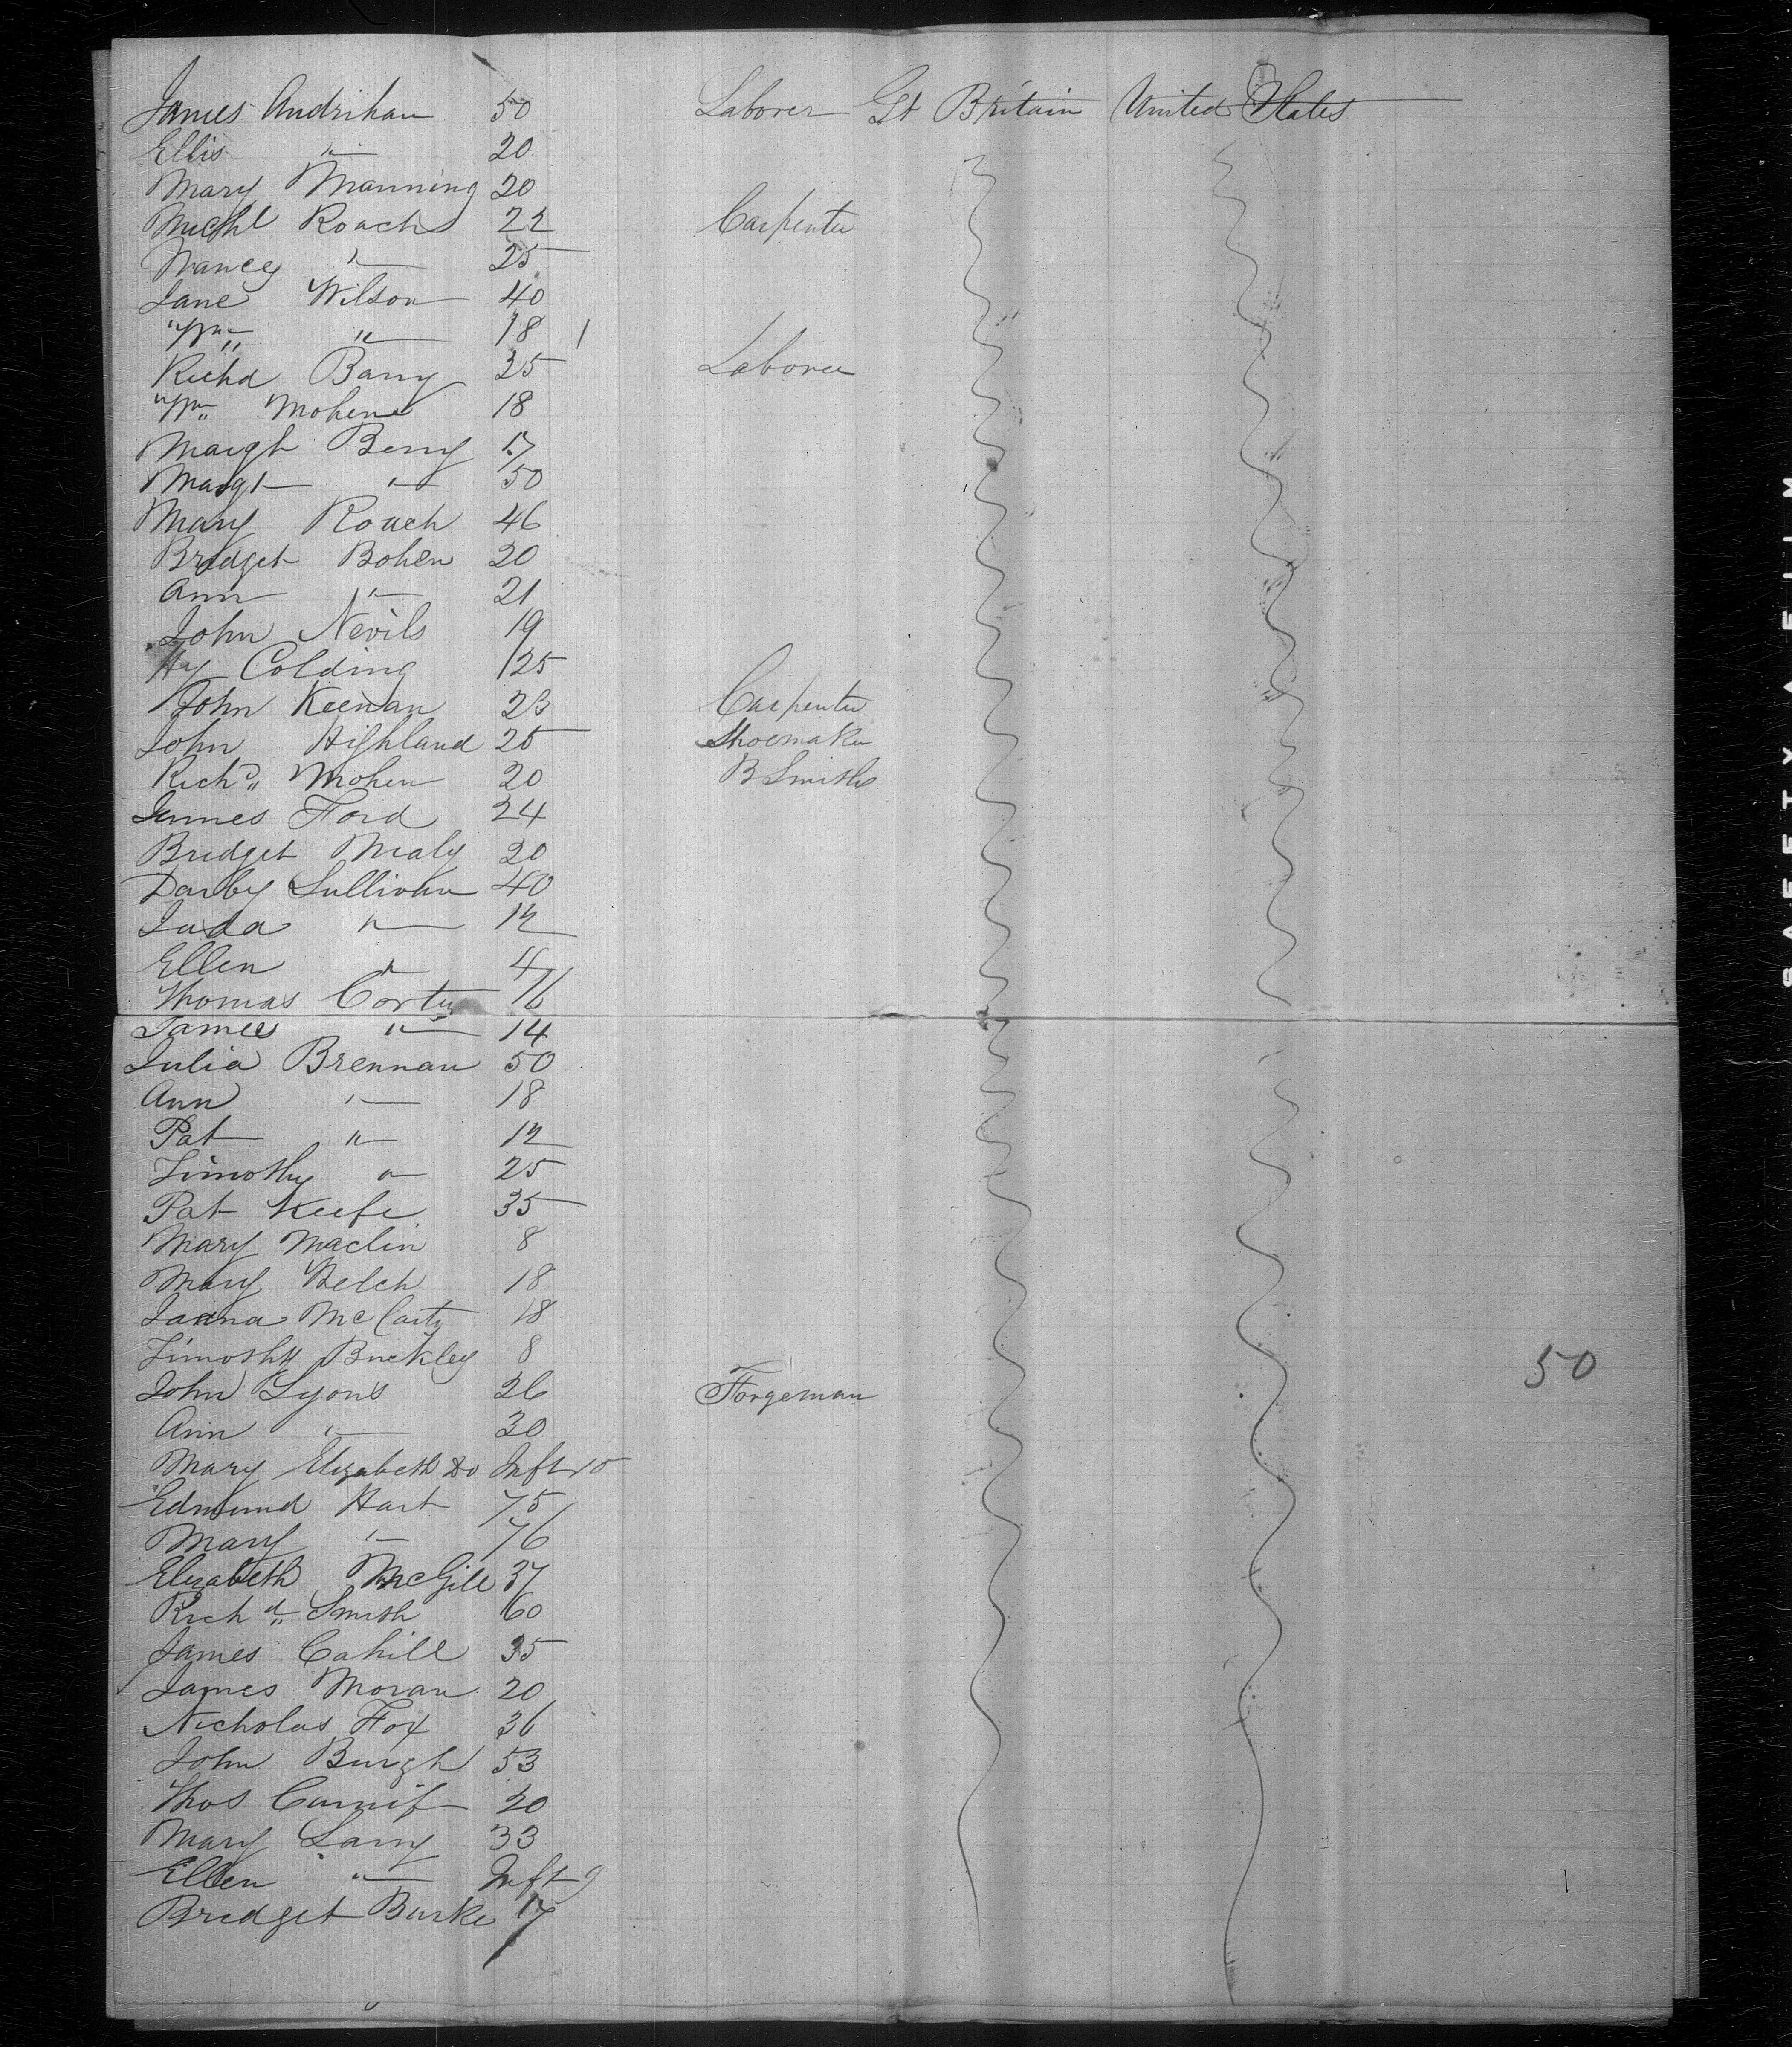 James Andrihan 50 Laborer Gt Britain United States
Ellis " 20
Mary Manning 20
Michl Roach 22 Carpenter
Nancy " 25
Jane Wilson 40
Wm " 18 1
Richd Barry 25 Laborer
Wm Mohene 18
Margt Berry 17
Margt " 50
Mary Roach 46
Bridget Bohen 20
Ann " 21
John Nevils 19
Hy Colding 25
John Keenan 23 Carpenter
John Highland 25 Shoemaker
Richd Mohen 20 B Smith
James Ford 24
Bridget Mealy 20
Darby Sullivan 40
Juda " 12
Ellen " 4
Thomas Corty 16
James " 14
Julia Brennan 50
Ann " 18
Pat " 12
Timothy " 25
Pat Keefe 35
Mary Maclin 8
Mary Belch 18
Joanna McCarty 18
Timothy Buckley 8
50
John Lyons 26 Forgeman
Ann " 30
Mary Elizabeth Do Inft
Edmund Hart 75
Mary " 76
Elizabeth McGill 37
Richd Smith 60
James Cahill 35
James Moran 20
Nicholas Fox 36
John Burgh 53
Thos 20
Mary Larry 33
Ellen " Inft 9
Bridget Burke 17
SAFETY FILM